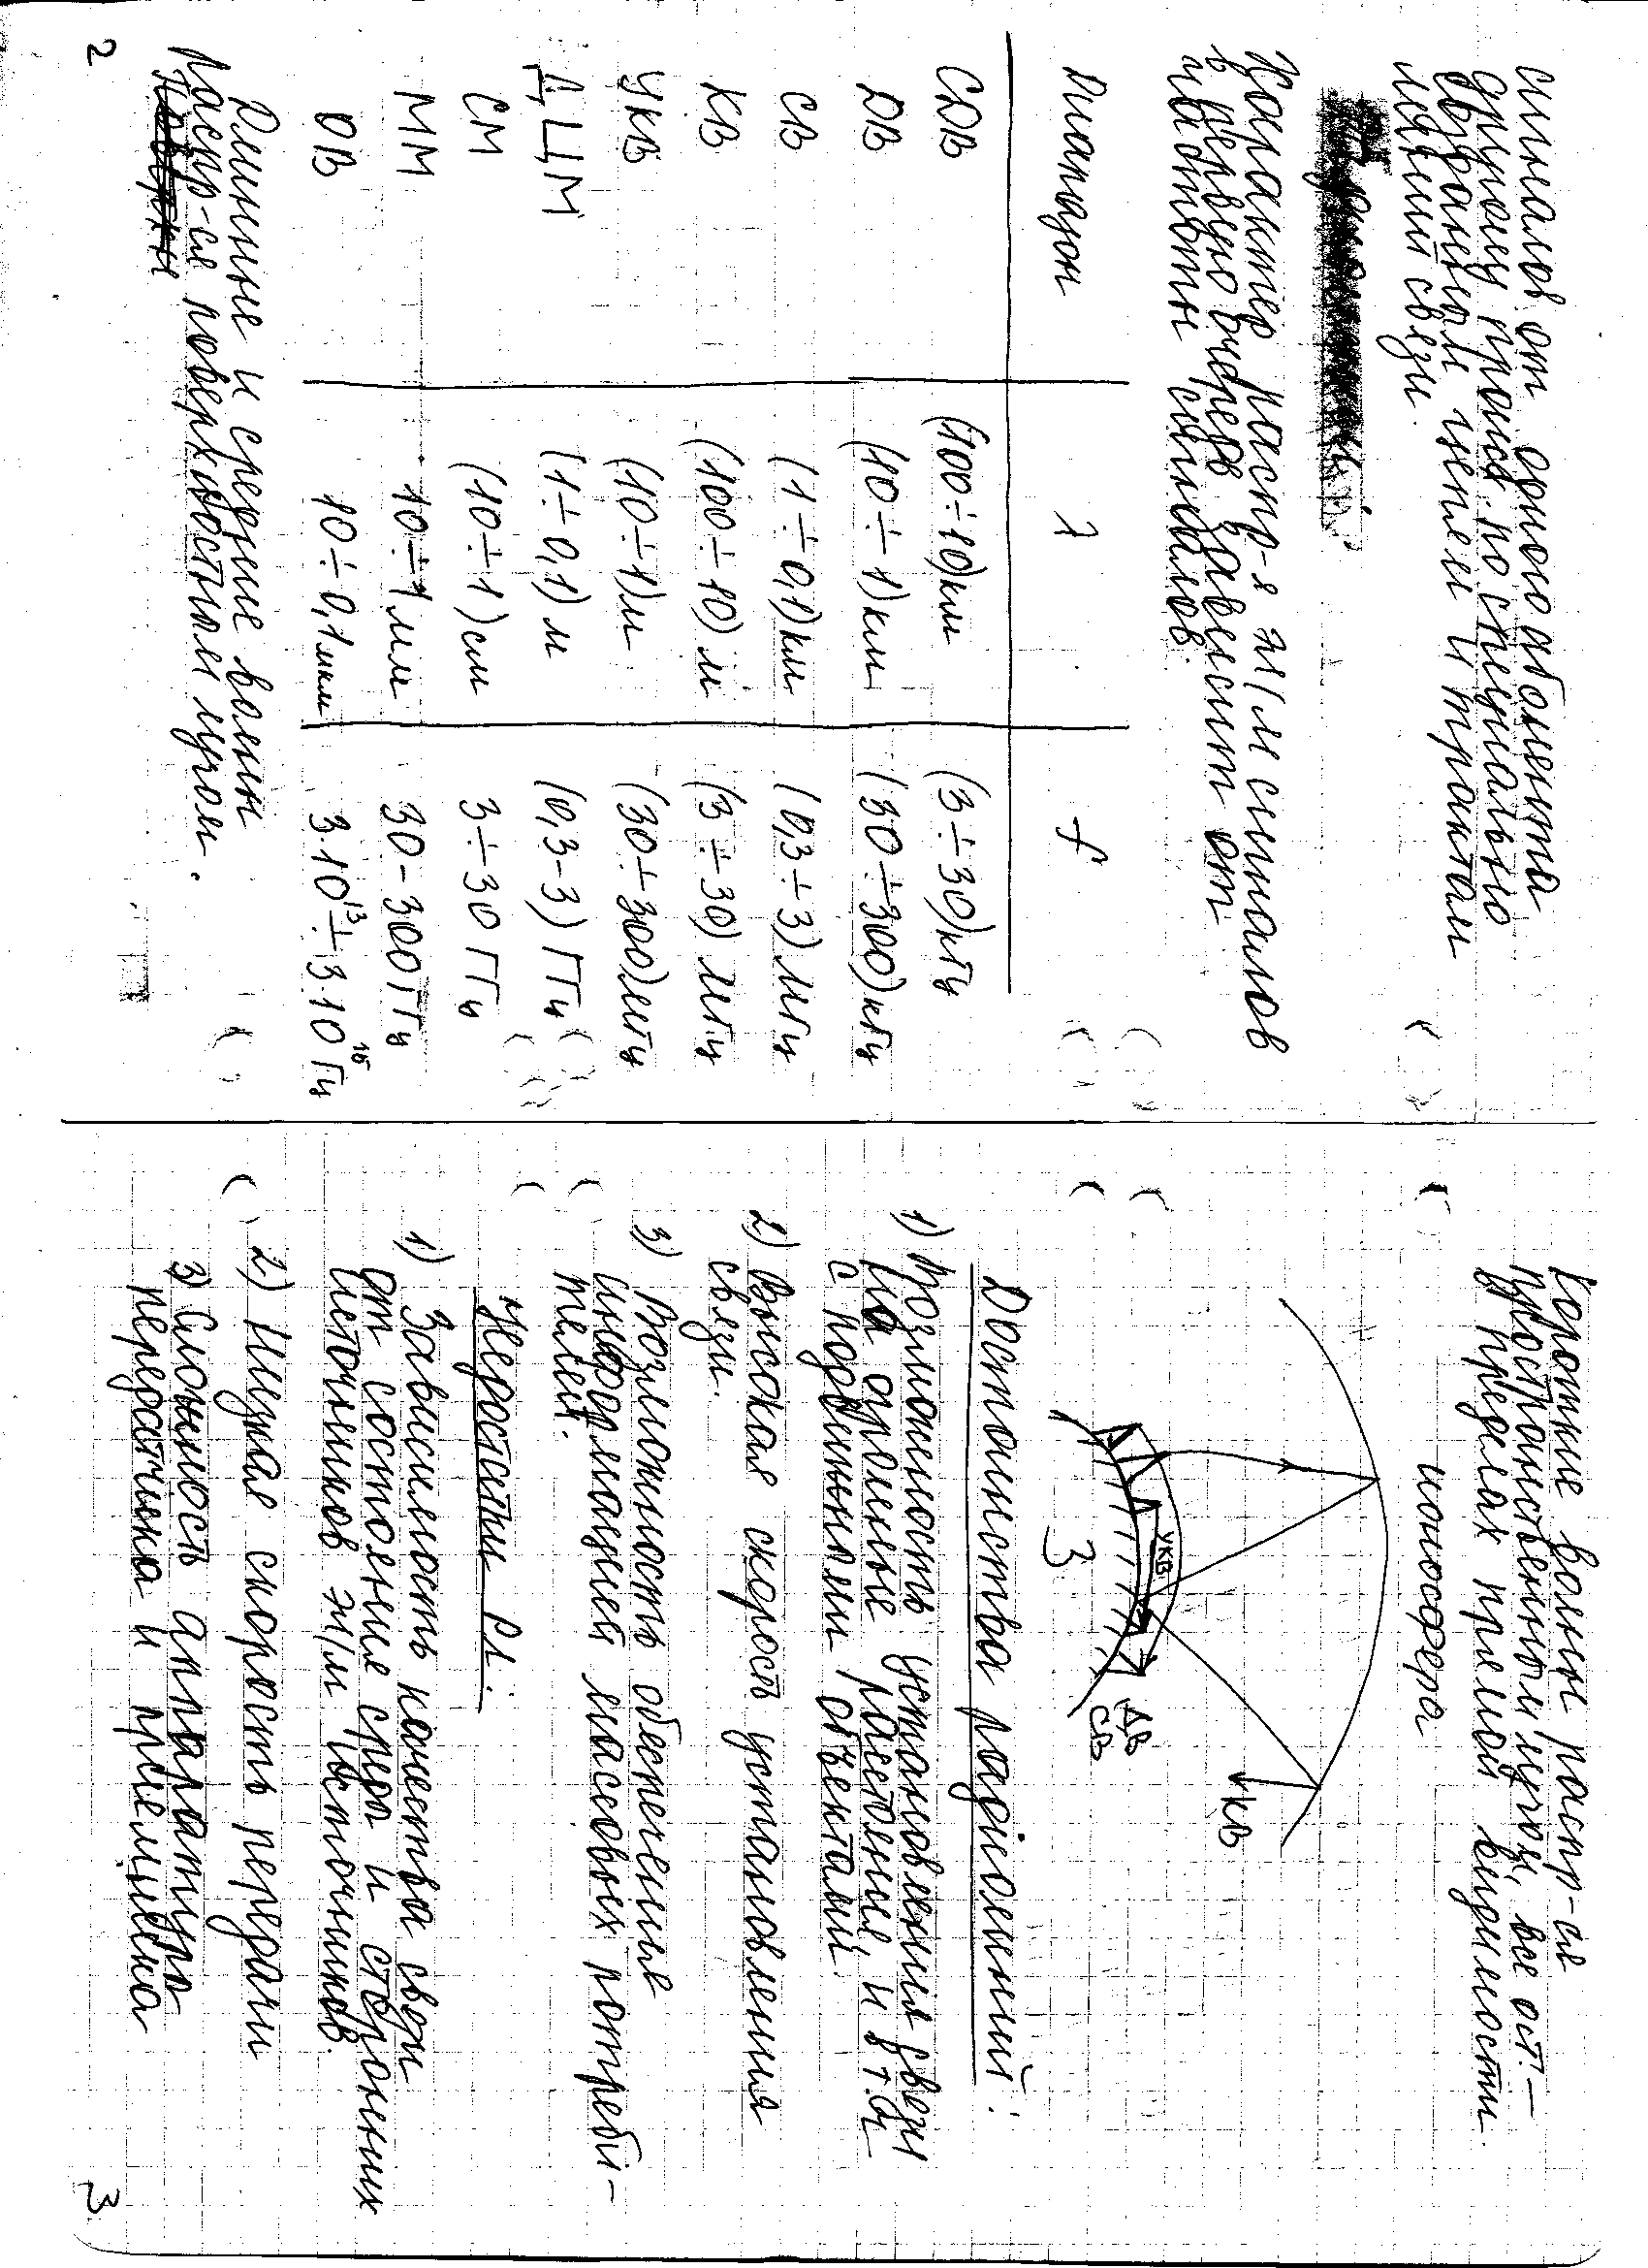 сигналов от одного абонента
другому происх. по специально
выбранным цепям и трактам
линии связи.
Характер распр-я эл/м сигналов
в первую очередь зависит от
частоты сигналов.
Диапазон λ f
СДВ (100÷10)км (3÷30)кГц
ДВ (10÷1)км (30÷300)кГц
СВ (1÷0,1)км (0,3÷3)МГц
КВ (100÷10)м (3÷30)МГц
УКВ (10÷1)м (30÷300)МГц
ДЦМ (1÷0,1)м (0,3-3)ГГц
СМ (10÷1)см 3÷30 ГГц
ММ 10÷1мм 30-300ГГц
ОВ 10÷0,1мкм 3.10¹³÷3.10¹⁵ Гц
Длинные и средние волны
распр-ся поверхностным лучом.
2
Короткие волны распр-ся
пространственным лучом, все ост. –
в пределах прямой видимости.
ионосфера
УКВ
ДВ
СВ
КВ
З
Достоинства радиолиний:
1) Возможность установления связи
на огромные расстояния, и в т.ч.
с подвижными объектами.
2) Высокая скорость установления
связи.
3) Возможность обеспечения
информацией массовых потреби-
телей.
Недостатки Рл:
1) Зависимость качества связи
от состояние среды и сторонних
источников эл/м источников.
2) Низкая скорость передачи
3) Сложность аппаратуры
передатчика и приемника
3